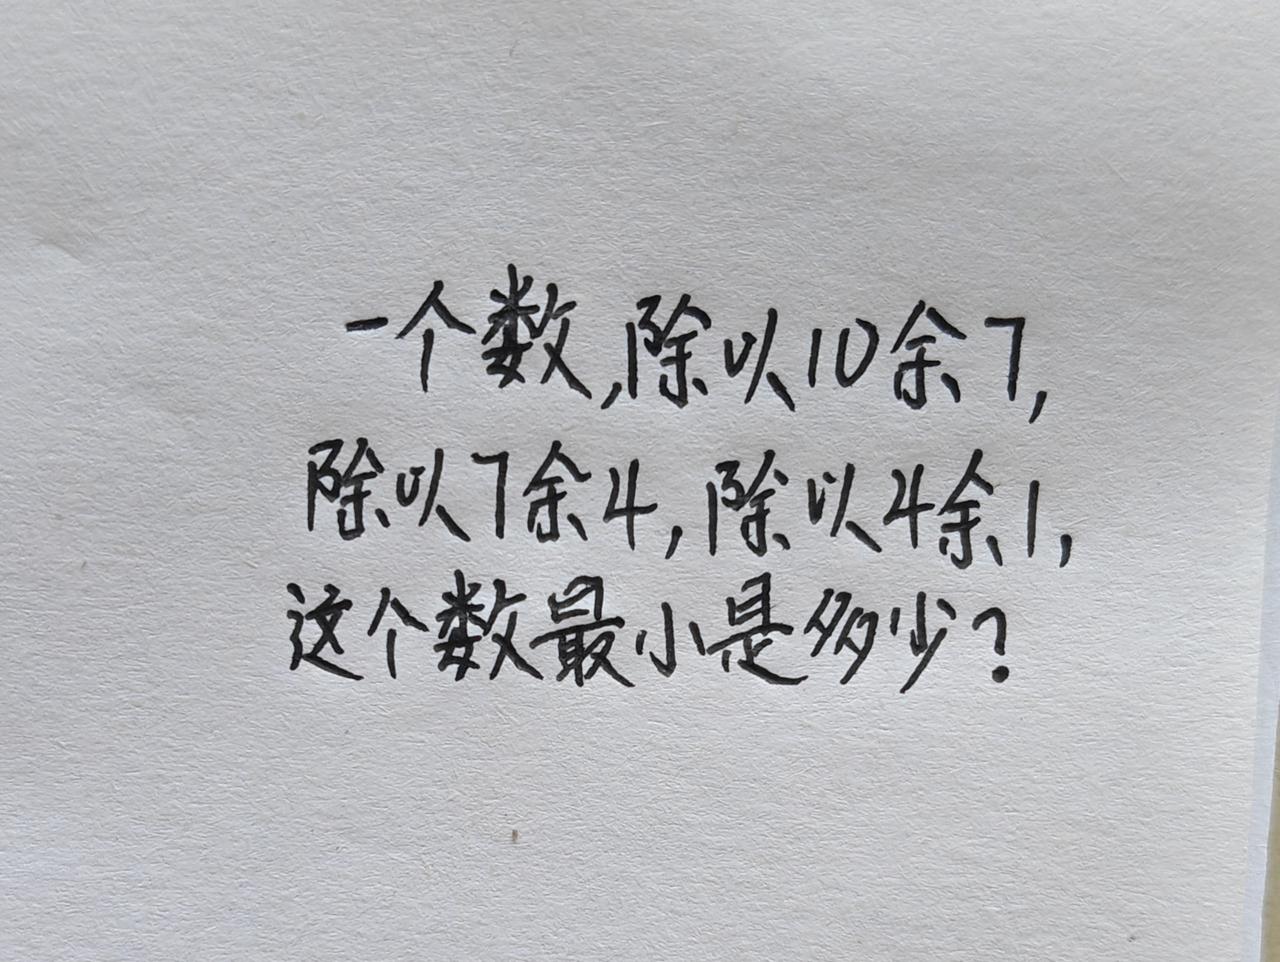 一个数,除以10余7,
除以7余4,除以4余1,
这个数最小是多少?